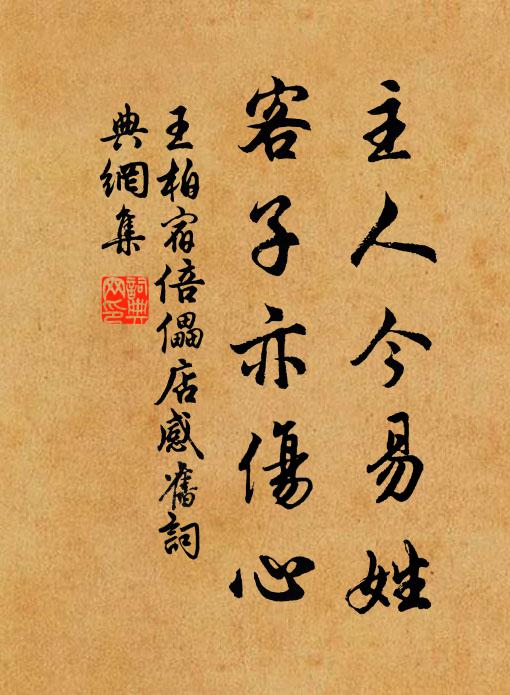 主人今易姓
客子亦傷心
王柏宿倍儡店感舊詞
典網集
詞典
网印